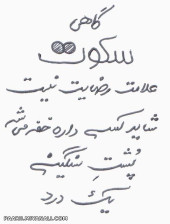 گاهی
سکوت
علامت رضایت نیست
شاید کسی داره خفه می شه
پشت سنگینیِ
یک درد